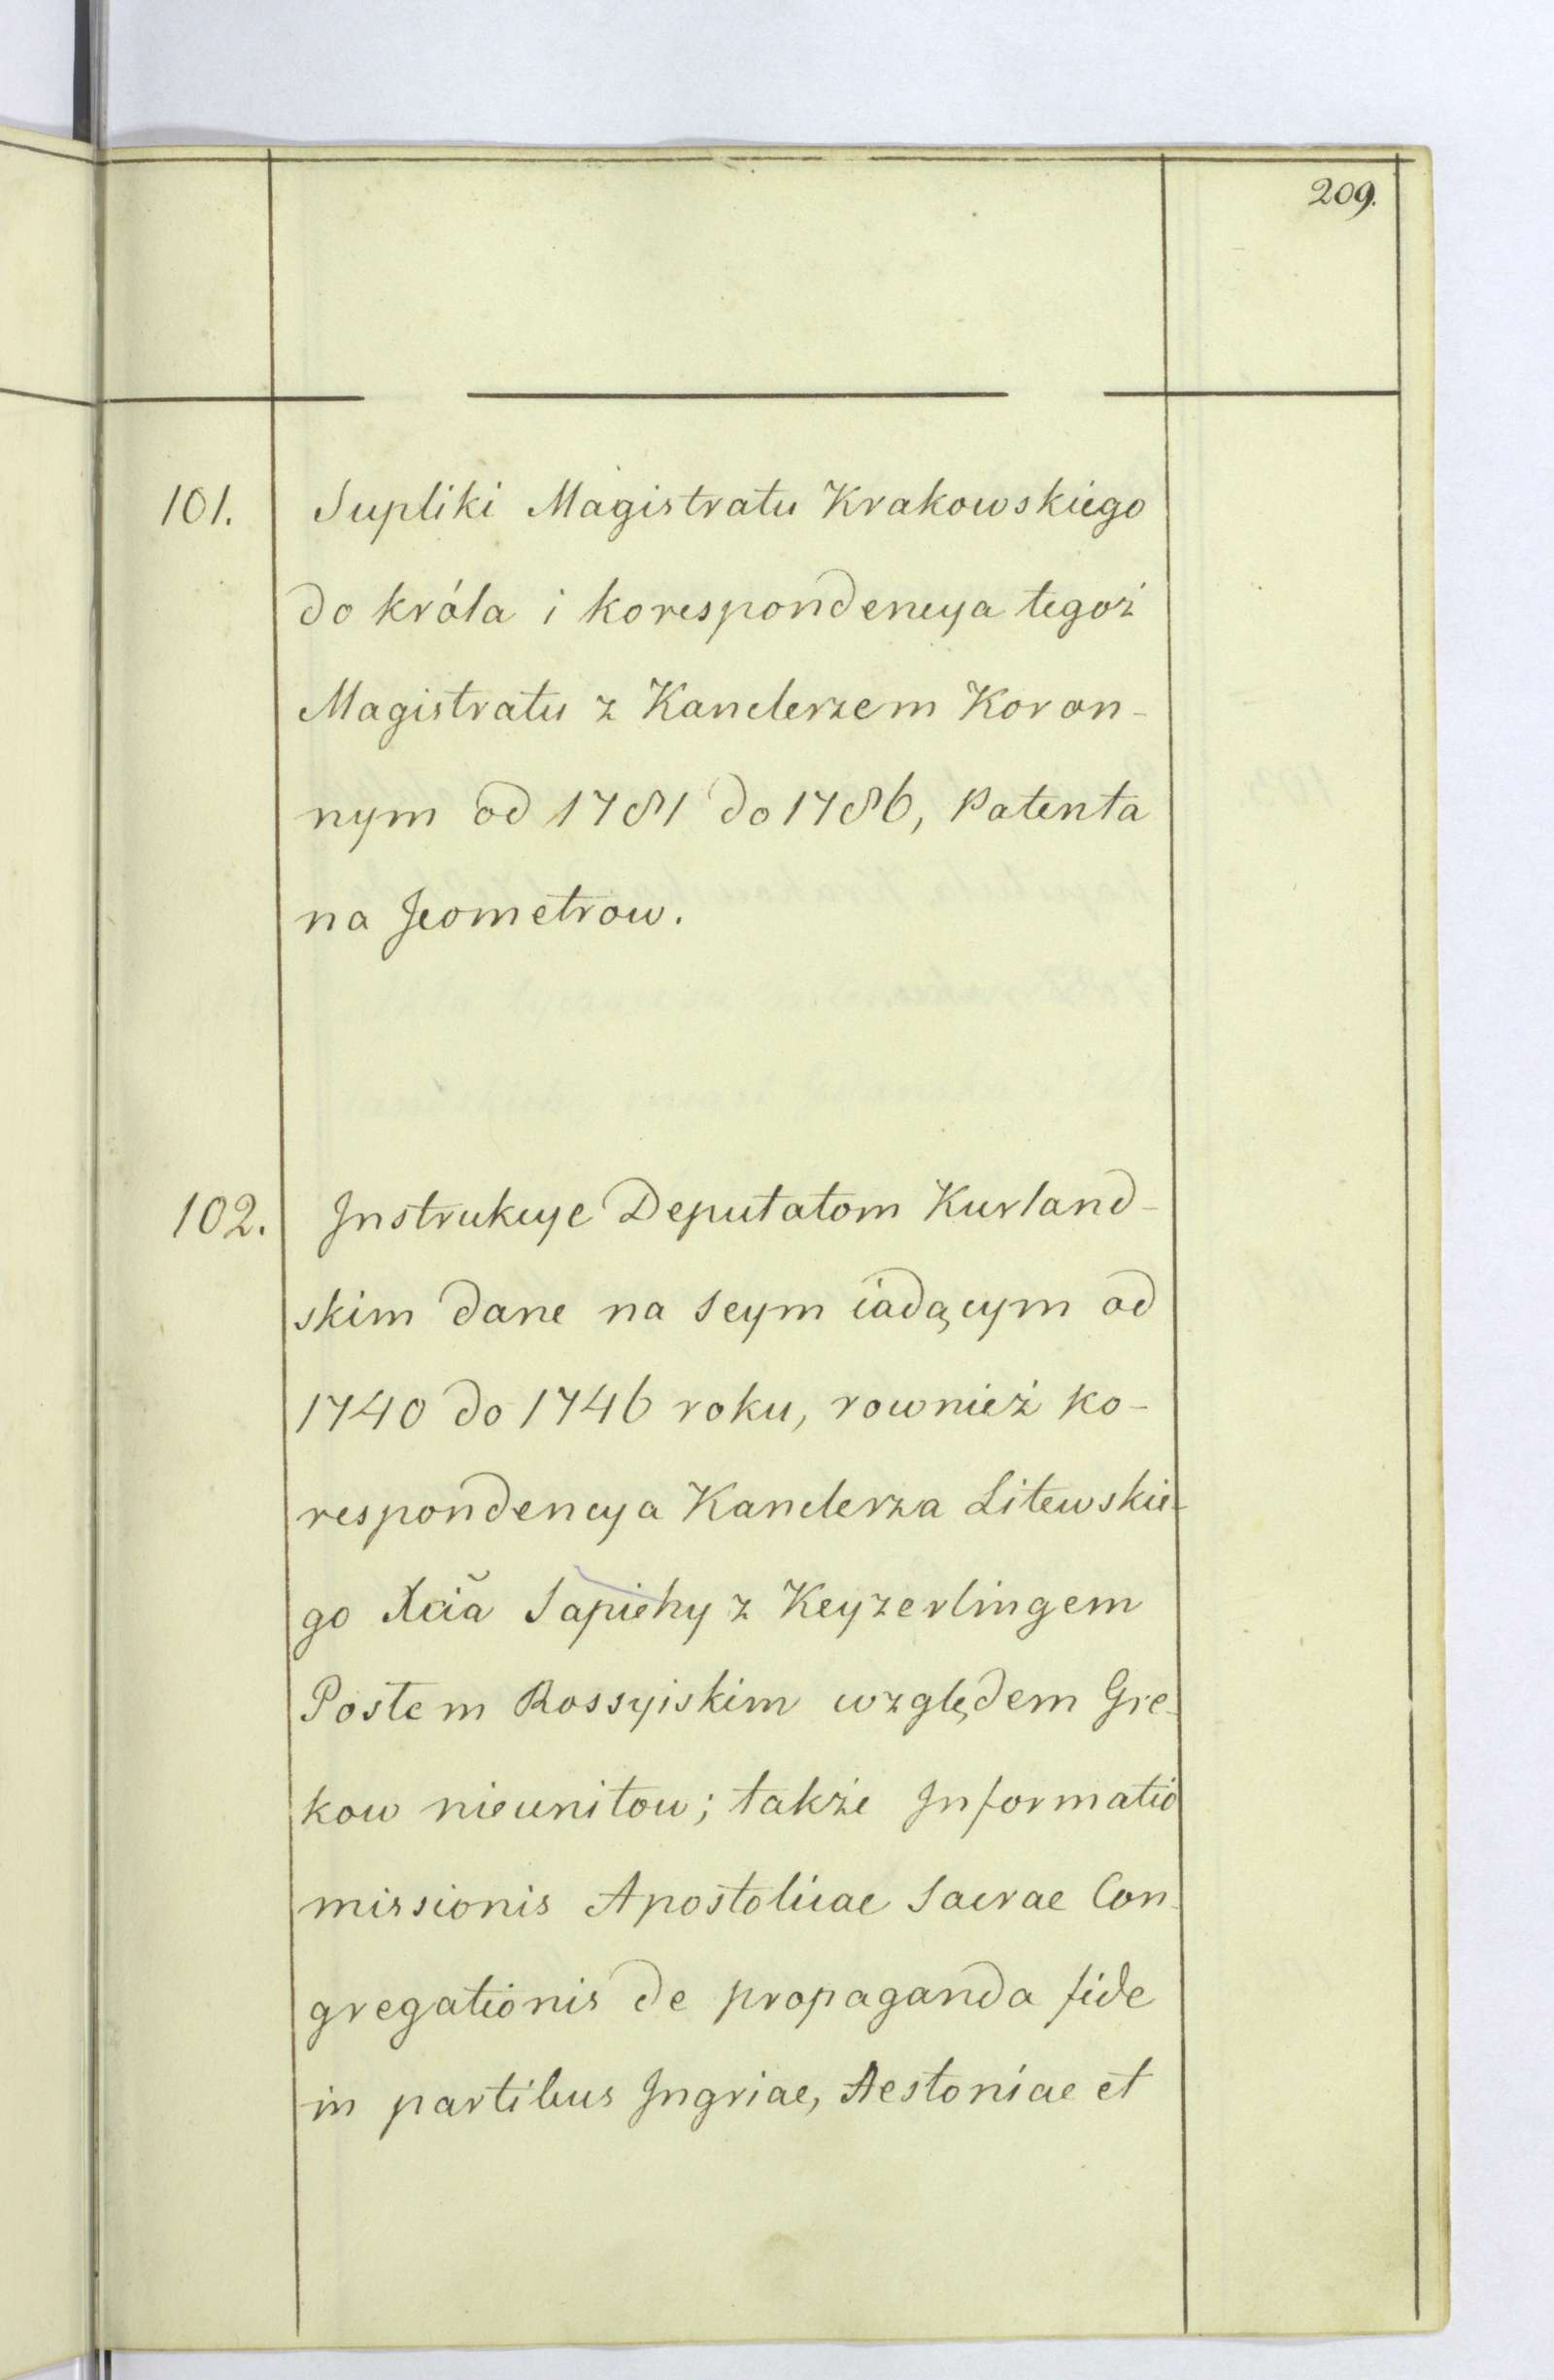 209.
101. Supliki Magistratu Krakowskiego
do króla i korespondencya tegoż
Magistratu z Kanclerzem Koron-
nym od 1781 do 1786, Patenta
na Jeometrow.
102. Instrukcye Deputatom Kurland-
skim dane na Seym iadącym od
1740 do 1746 roku, rownież ko-
respondencya Kanclerza Litewskie-
go Xcia Sapiehy z Keyzerlingem
Posłem Rossyiskim względem Gre-
kow nieunitow; także Informatio
missionis Apostolicae Sacrae Con-
gregationis de propaganda fide
in partibus Ingriae, Aestoniae et